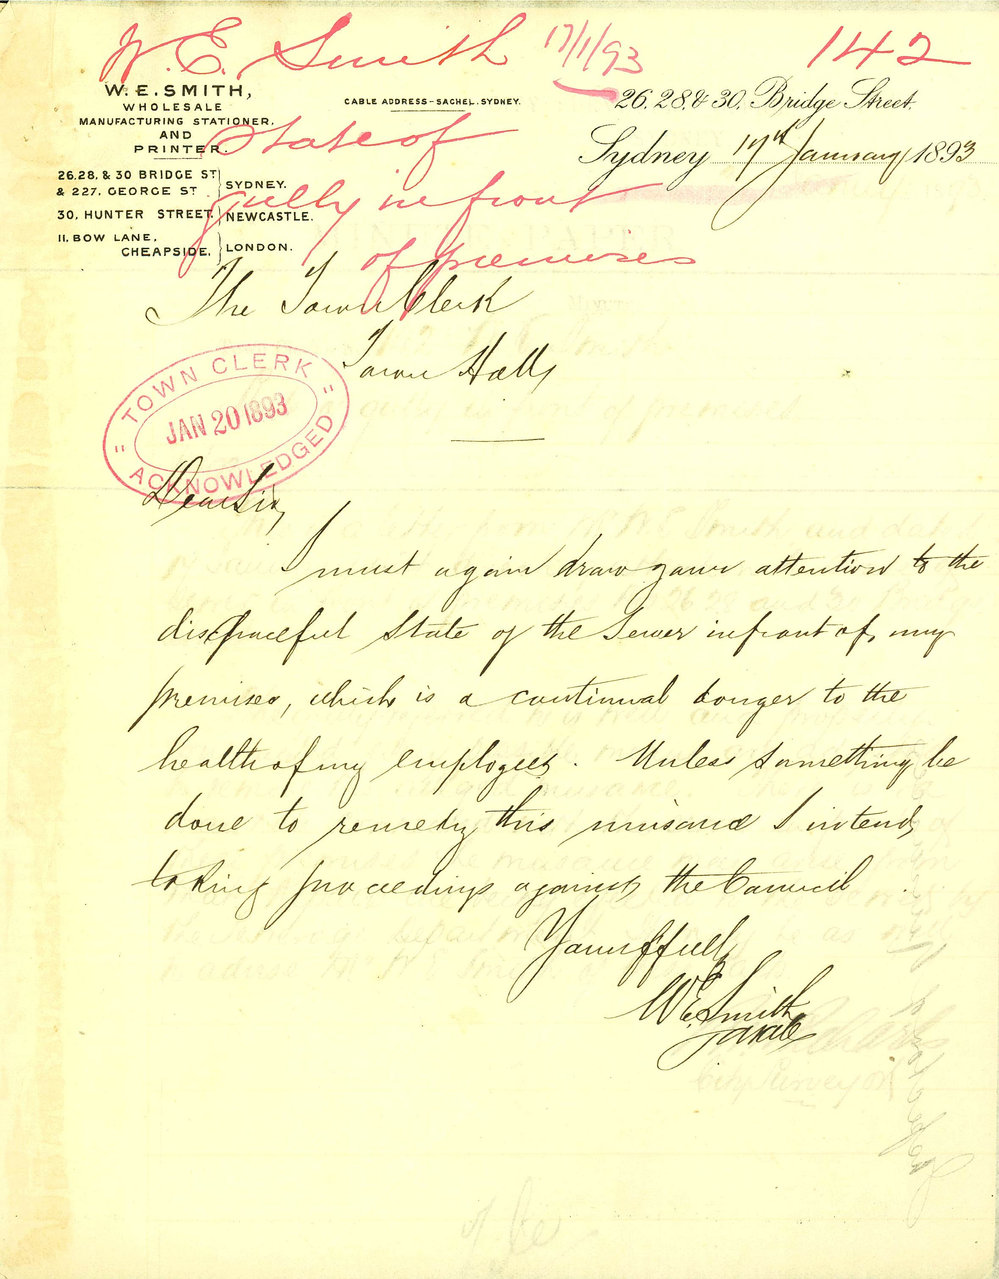 W. E. Smith 17/1/93 142
W. E. SMITH,
WHOLESALE
MANUFACTURING STATIONER,
AND
PRINTER.
CABLE ADDRESS – SACHEL. SYDNEY.
26. 28. & 30. Bridge Street.
Sydney 17th January 1893
State of
gully in front
of premises
26.28. & 30 BRIDGE ST
& 227, GEORGE ST } SYDNEY.
30, HUNTER STREET. } NEWCASTLE.
11, BOW LANE,
CHEAPSIDE. } LONDON.
The Town Clerk
Town Hall
TOWN CLERK
JAN 20 1893
ACKNOWLEDGED
Dear Sir,
I must again draw your attention to the
disgraceful state of the Sewer in front of my
premises, which is a continual danger to the
health of my employees. Unless something be
done to remedy this nuisance I intend
taking proceedings against the Council
Yours ffully
W E Smith